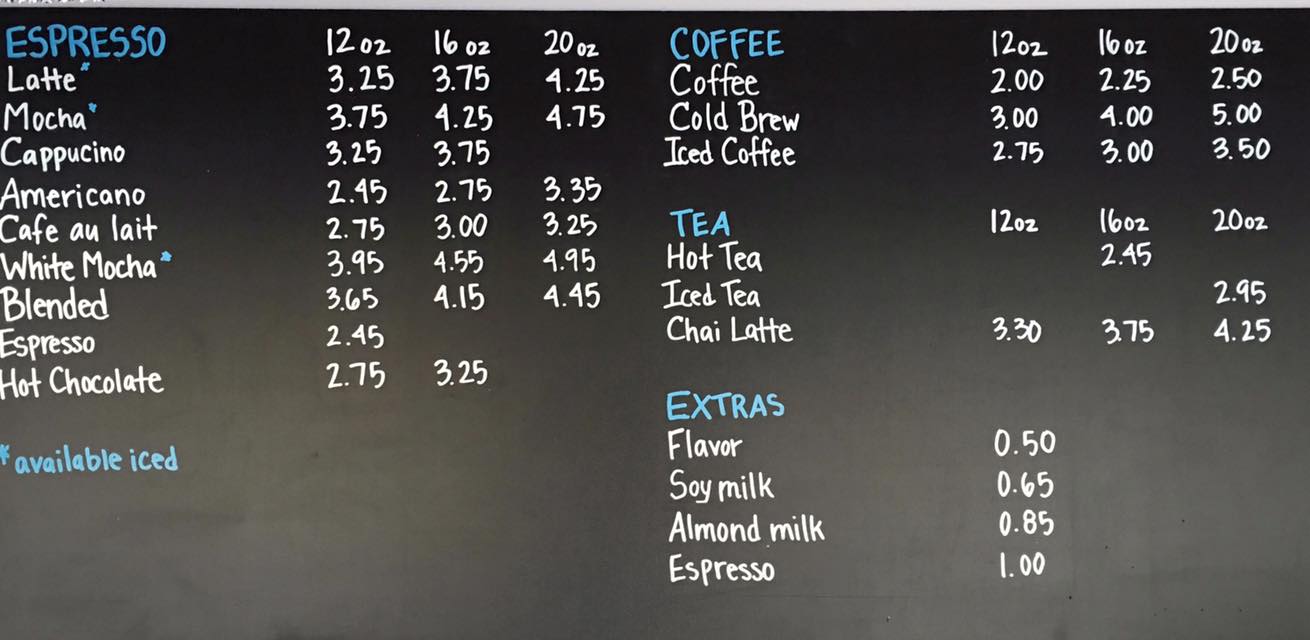 ESPRESSO 12 oz 16 oz 20 oz
Latte* 3.25 3.75 4.25
Mocha* 3.75 4.25 4.75
Cappucino 3.25 3.75
Americano 2.45 2.75 3.35
Cafe au lait 2.75 3.00 3.25
White Mocha* 3.95 4.55 4.95
Blended 3.65 4.15 4.45
Espresso 2.45
Hot Chocolate 2.75 3.25
*available iced
COFFEE 12oz 16oz 20oz
Coffee 2.00 2.25 2.50
Cold Brew 3.00 4.00 5.00
Iced Coffee 2.75 3.00 3.50
TEA 12oz 16oz 20oz
Hot Tea 2.45
Iced Tea 2.95
Chai Latte 3.30 3.75 4.25
EXTRAS
Flavor 0.50
Soy milk 0.65
Almond milk 0.85
Espresso 1.00